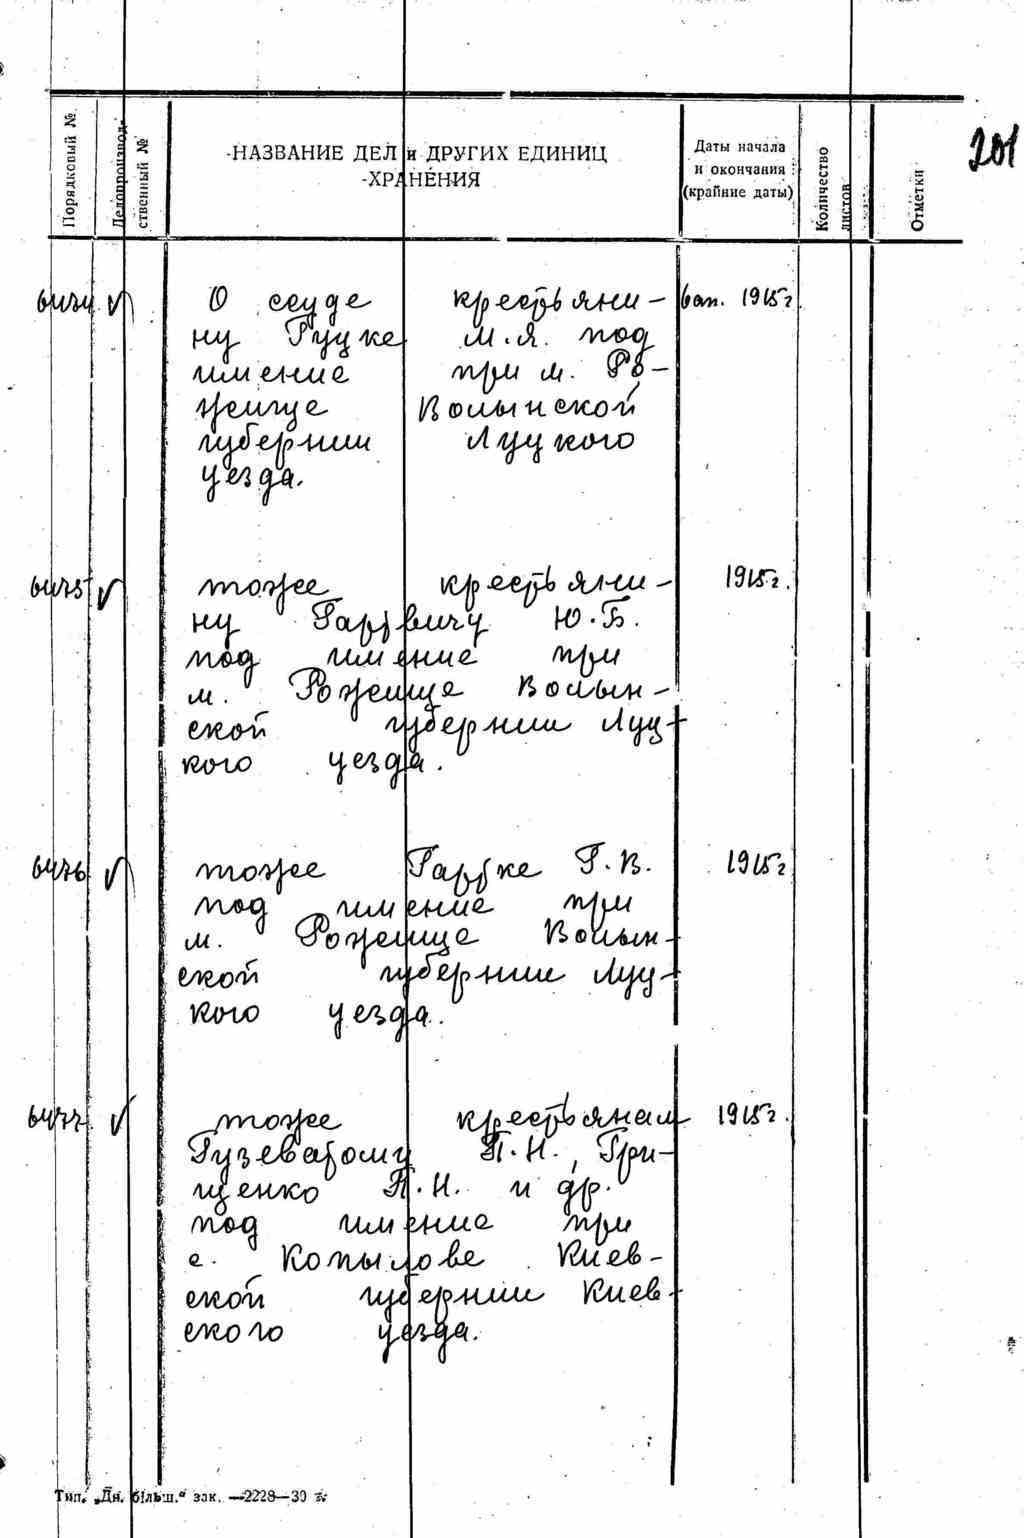 201
Порядковый №
Делопроизвод-
ственный №
НАЗВАНИЕ ДЕЛ и ДРУГИХ ЕДИНИЦ
ХРАНЕНИЯ
Даты начала
и окончания
(крайние даты)
Количество
листов
Отметки
6474 О ссуде крестьяни- 1915г.
ну Гуцке М.Я. под
имение при м. Ро-
жище Волынской
губернии Луцкого
уезда.
6475 тоже крестьяни- 1915г.
ну Гартвичу Ю.Б.
под имение при
м. Рожище Волын-
ской губернии Луц-
кого уезда.
6476 тоже Гаррке Г.В. 1915г.
под имение при
м. Рожище Волын-
ской губернии Луц-
кого уезда.
6477 тоже крестьянам 1915г.
Гузеватому П.Н., Гри-
щенко П.Н. и др.
под имение при
с. Копылове Киев-
ской губернии Киев-
ского уезда.
Тип. „Дн. більш.“ зак. —2228—30